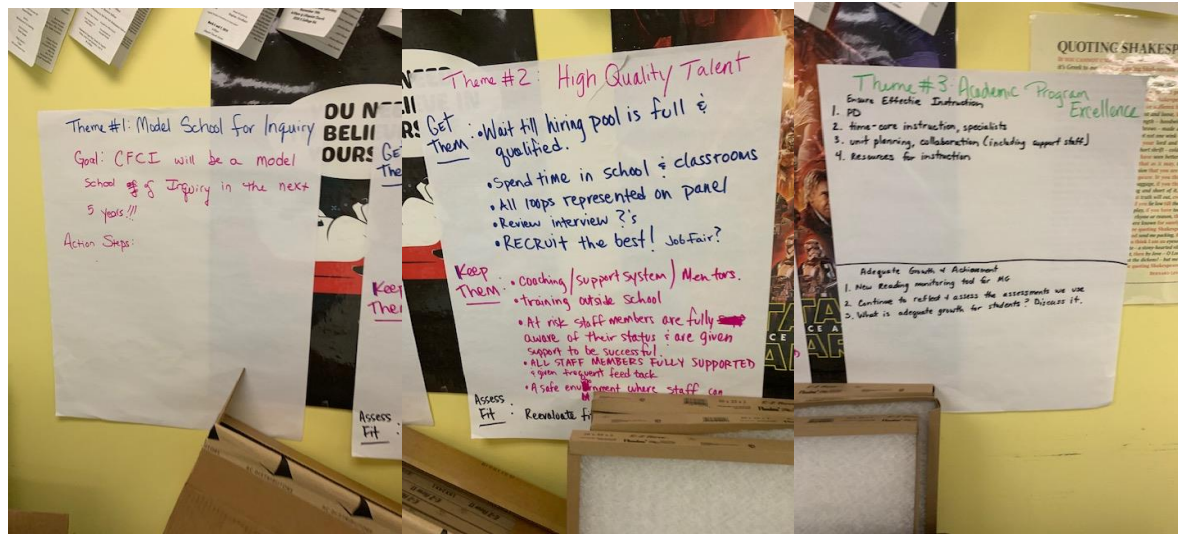 Theme #1: Model School for Inquiry
Goal: CFCI will be a model
School of Inquiry in the next
5 years!!!
Action Steps:
OU NEED
BELIE
OURS
Get
The
Keep
The
Assess
Fit :
Theme #2: High Quality Talent
Get
Them:
• Wait till hiring pool is full &
qualified.
• Spend time in school & classrooms
• All loops represented on panel
• Review interview ?'s
• RECRUIT the best! Job Fair?
Keep
Them:
• Coaching/support system/Mentors.
• training outside school
• At risk staff members are fully
aware of their status & are given
support to be successful.
• ALL STAFF MEMBERS FULLY SUPPORTED
& given frequent feed back
• A safe environment where staff can
Assess
Fit : Reevaluate
Theme #3: Academic Program
Excellence
Ensure Effective Instruction
1. PD
2. time-core instruction, specialists
3. unit planning, collaboration (including support staff)
4. Resources for instruction
Adequate Growth & Achievement
1. New Reading monitoring tool for MG
2. Continue to reflect & assess the assessments we use
3. What is adequate growth for students? Discuss it.
QUOTING SHAKESP